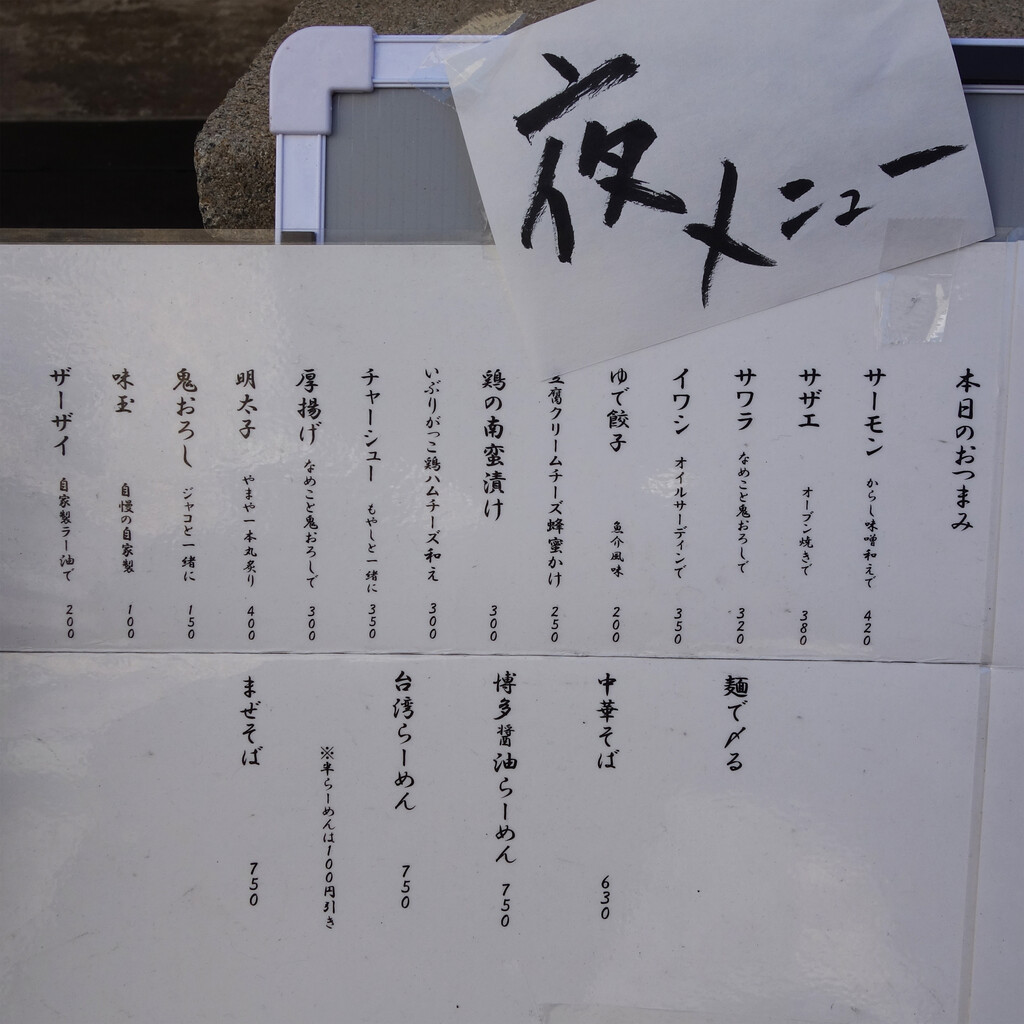 夜メニュー
本日のおつまみ
サーモン からし味噌和えで 420
サザエ オーブン焼きで 380
サワラ なめこと鬼おろしで 320
イワシ オイルサーディンで 350
ゆで餃子 魚介風味 200
豆腐クリームチーズ蜂蜜かけ 250
鶏の南蛮漬け 300
いぶりがっこ鶏ハムチーズ和え 300
チャーシュー もやしと一緒に 350
厚揚げ なめこと鬼おろしで 300
明太子 やまや一本丸炙り 400
鬼おろし ジャコと一緒に 150
味玉 自慢の自家製 100
ザーザイ 自家製ラー油で 200
麺で〆る
中華そば 630
博多醤油らーめん 750
台湾らーめん 750
※半らーめんは100円引き
まぜそば 750